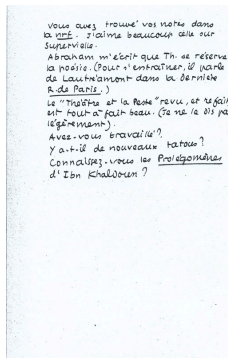 vous avez trouvé vos notes dans
la nrf. J'aime beaucoup celle sur
Supervielle.
Abraham m'écrit que Th. se réserve
la poésie. (Pour s'entraîner, il parle
de Lautréamont dans la dernière
R. de Paris.)
Le "Théâtre et la Peste" revu, et refait
est tout à fait beau. (Je ne le dis pas
légèrement).
Avez-vous travaillé?
Y a-t-il de nouveaux tatous?
Connaissez-vous les Prolégomènes
d'Ibn Khaldoun?